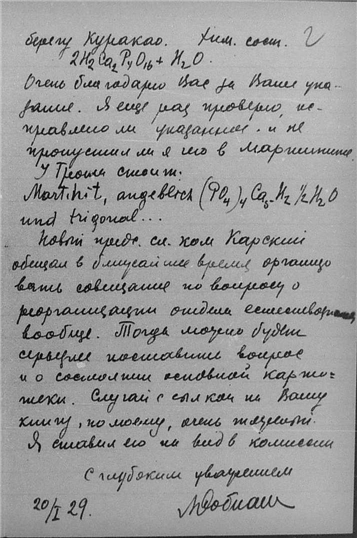 берегу Куракао. Хим. сост. 2
2H₂Ca₂P₄O₁₆ + H₂O.
Очень благодарю Вас за Ваше ука-
зание. Я еще раз проверю, ис-
правлено ли указанное и не
пропустил ли я его в Мартините.
У Грота стоит:
Martinit, angeblich (PO₄)₄Ca₅H₂ ½H₂O
und trigonal...
Новый предс. сл. ком Карский
обещал в ближайшее время организо
вать совещание по вопросу о
реорганизации отдела естествознания
вообще. Тогда можно будет
серьезнее поставить вопрос
и о состоянии основной карто-
теки. Случай с ссылкой на Вашу
книгу, по моему, очень тяжелый.
Я ставил его на вид в комиссии
С глубоким уважением
20/I 29. МДобиаш